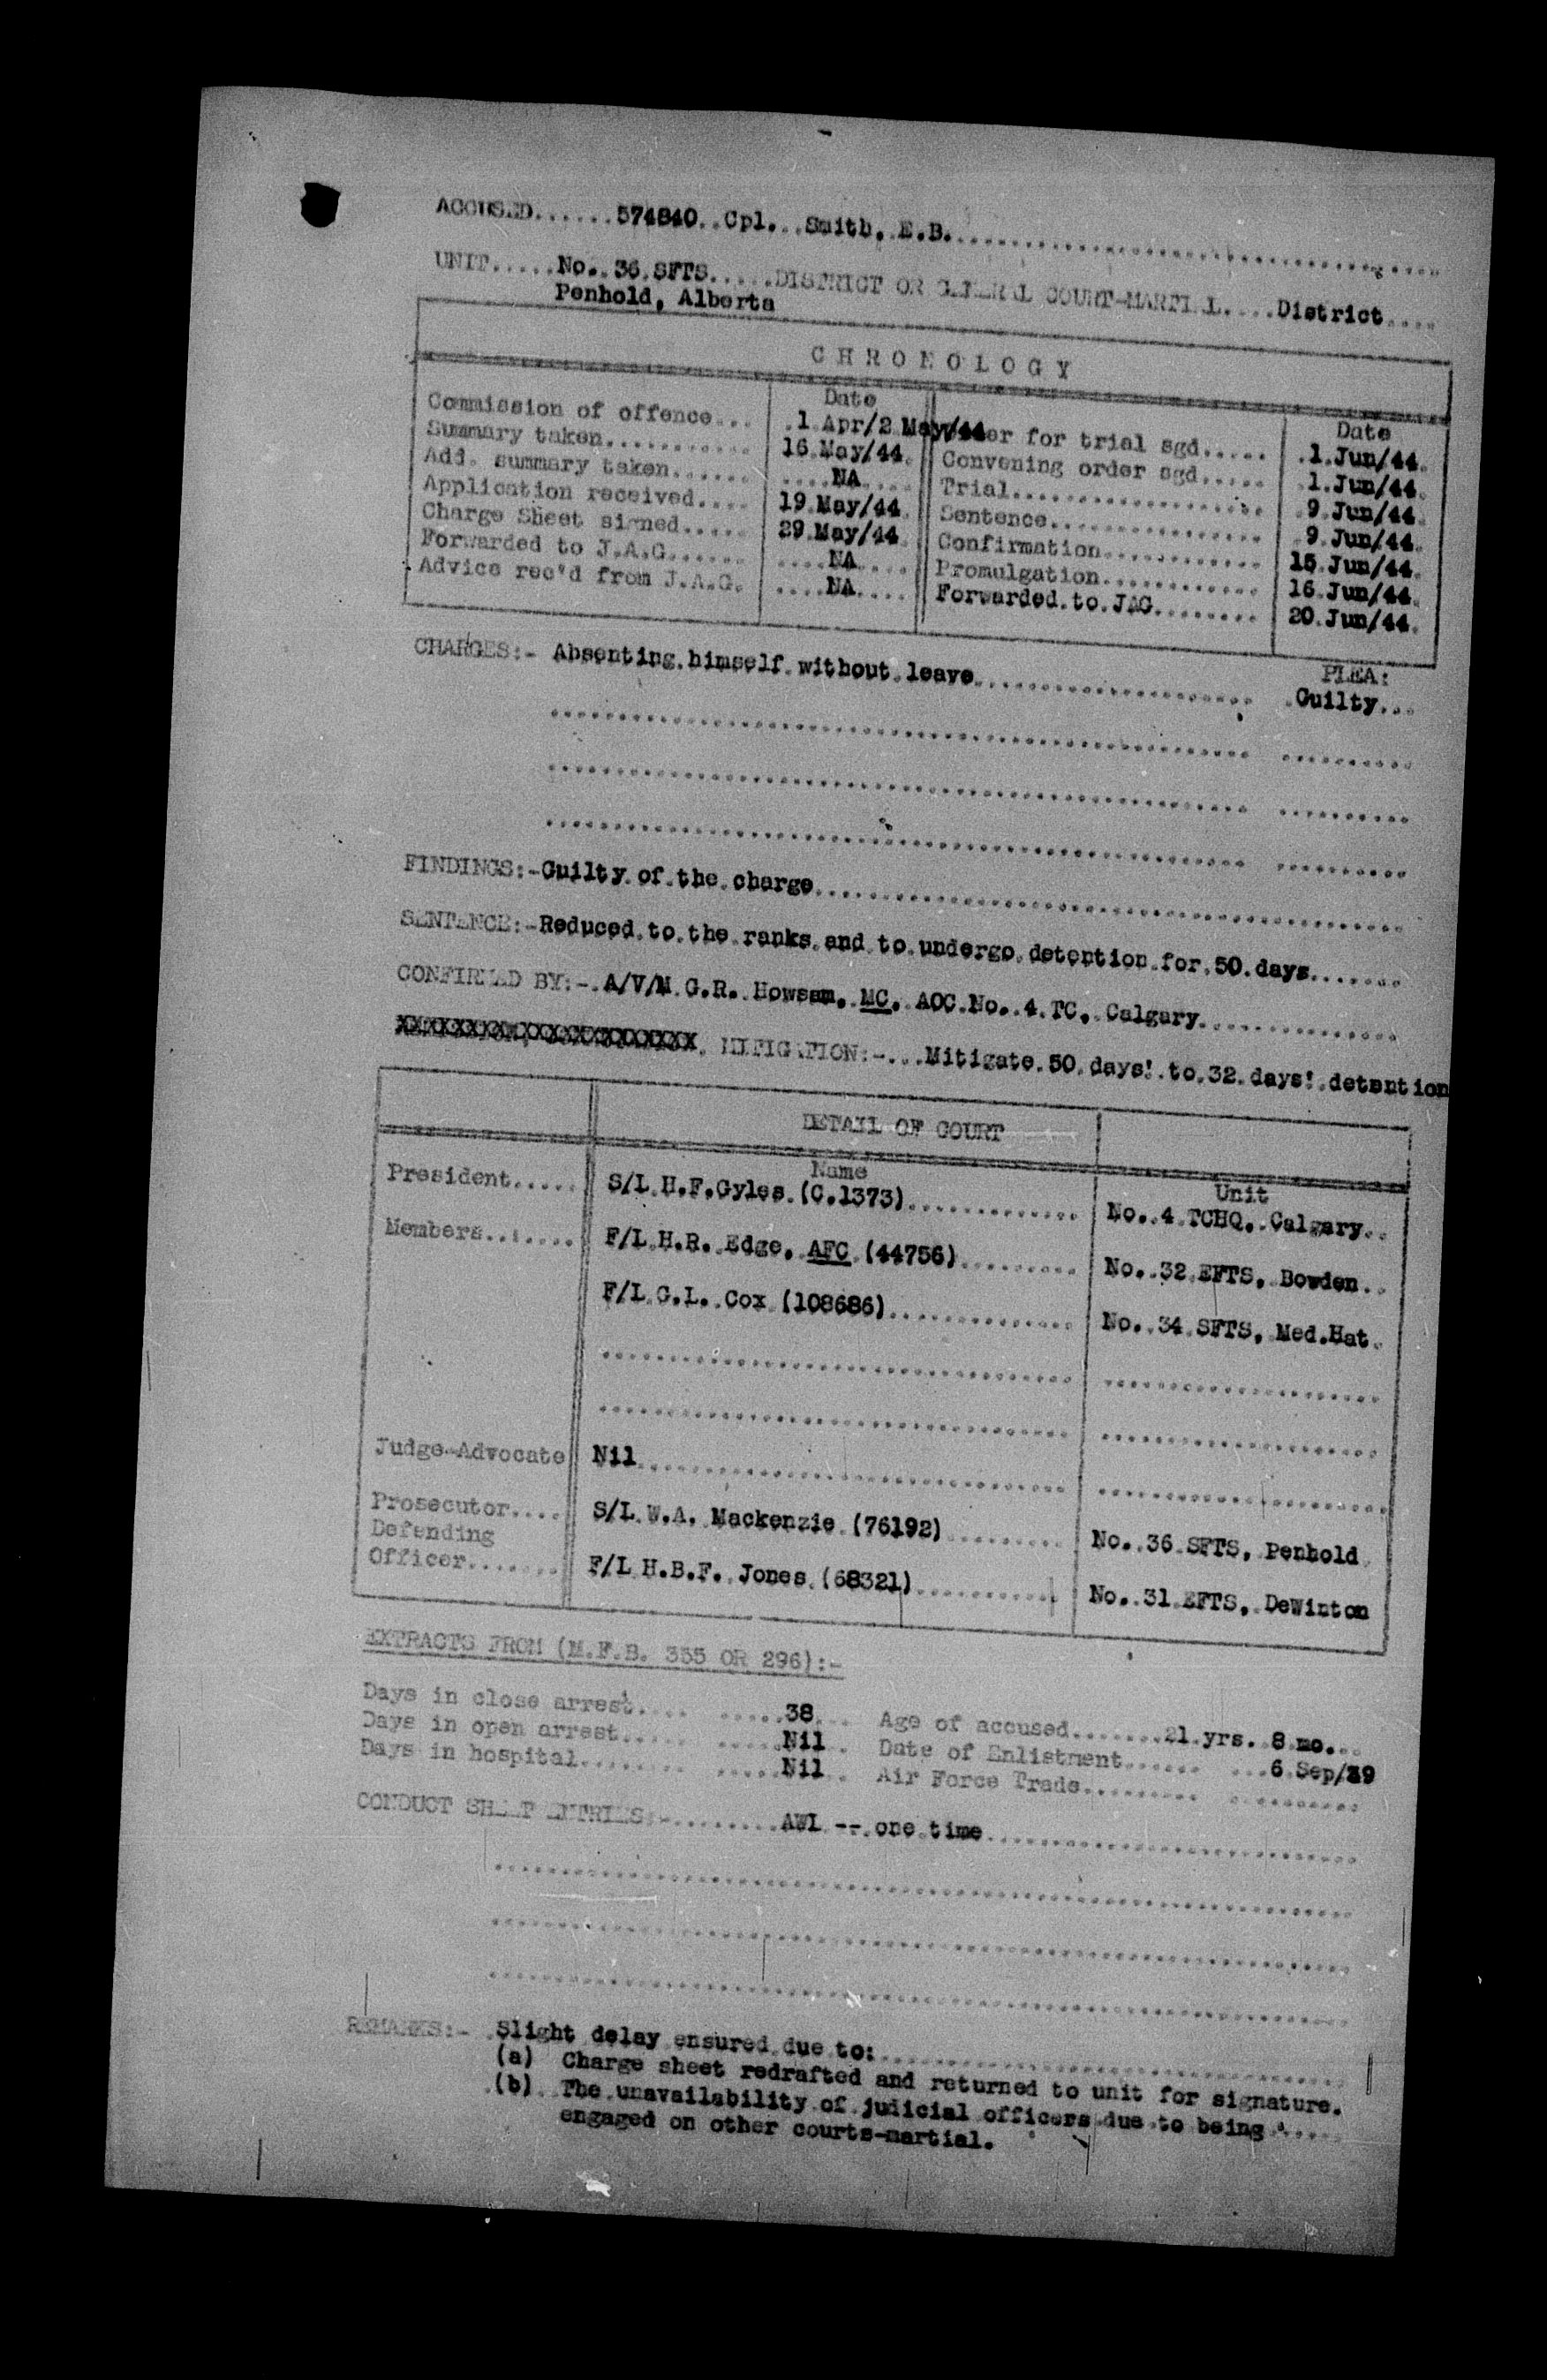 ACCUSED......574840..Cpl...Smith, E.B.
UNIT.....No..36.SFTS.....DISTRICT OR GENERAL COURT-MARTIAL....District....
Penhold, Alberta
CHRONOLOGY
Date Date
Commission of offence... .1 Apr/2 May/44 er for trial sgd..... .1.Jun/44.
Summary taken........... 16.May/44. Convening order sgd..... 1.Jun/44.
Add. summary taken...... ....NA.... Trial................... 9.Jun/44.
Application received.... 19.May/44. Sentence................ 9.Jun/44.
Charge Sheet signed..... 29.May/44. Confirmation............ 15.Jun/44.
Forwarded to J.A.G...... ....NA.... Promulgation............ 16.Jun/44.
Advice rec'd from J.A.G. ....NA.... Forwarded.to.JAG........ 20.Jun/44.
PLEA:
CHARGES:- Absenting.himself.without.leave..................... .Guilty...
FINDINGS:-Guilty.of.the.charge............................................
SENTENCE:-Reduced.to.the.ranks.and.to.undergo.detention.for.50.days.......
CONFIRMED BY:-.A/V/M G.R. Howsam, MC, AOC.No..4.TC,.Calgary...............
XXXXXXXXXXXXXXXXXXXXXX. MITIGATION:-...Mitigate.50.days'.to.32.days'.detention
DETAIL OF COURT
Name Unit
President..... S/L.H.F.Gyles.(C.1373)............. No..4.TCHQ,.Calgary..
Members....... F/L.H.R. Edge, AFC (44756)......... No..32.EFTS, Bowden..
F/L.G.L..Cox (108686).............. No..34.SFTS, Med.Hat.
Judge-Advocate Nil................................
Prosecutor.... S/L.W.A. Mackenzie (76192)......... No..36.SFTS, Penhold.
Defending
Officer....... F/L H.B.F. Jones.(68321)........... No..31.EFTS, DeWinton
EXTRACTS FROM (M.F.B. 355 OR 296):-
Days in close arrest.... .....38... Age of accused.......21.yrs. 8 mo...
Days in open arrest..... .....Nil.. Date of Enlistment...... ...6.Sep/39
Days in hospital........ .....Nil.. Air Force Trade......... ..........
CONDUCT SHEET ENTRIES:-........AWL --.one.time............................
REMARKS:- .Slight delay ensured.due to:...................................
(a) Charge sheet redrafted and returned to unit for signature.
.(b). The.unavailability.of.judicial officers.due.to being.......
engaged on other courts-martial.